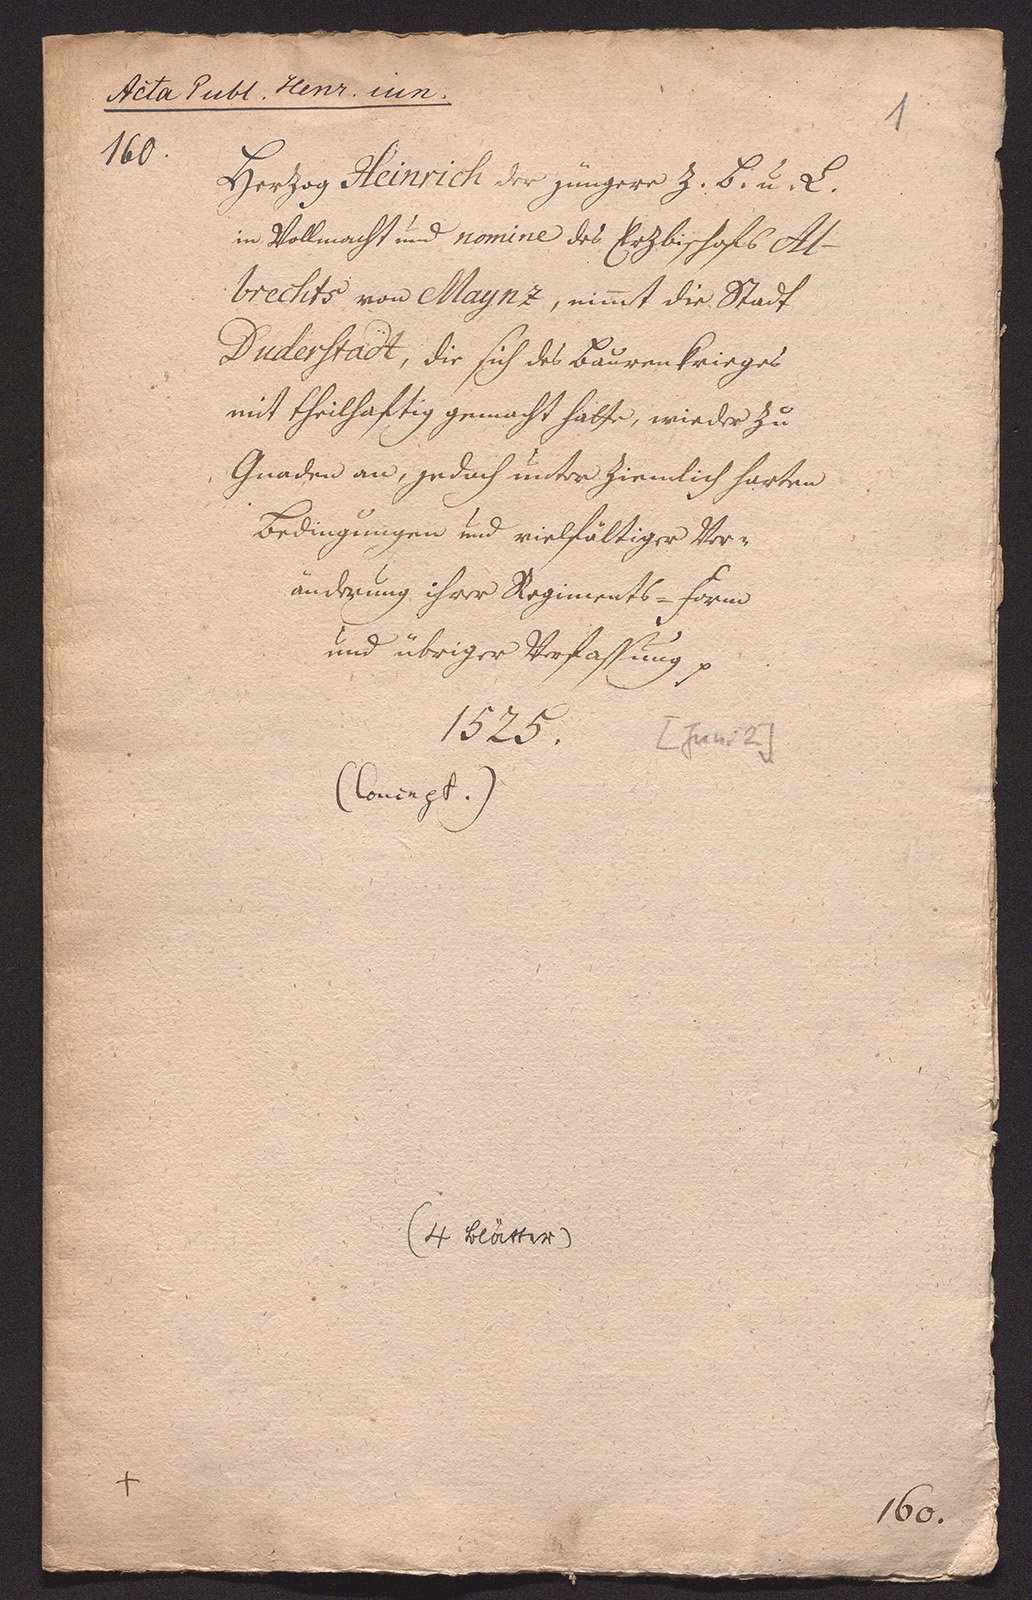 Acta Publ. Henr. iun.
1
160.
Herzog Heinrich der jüngere z. B. u. L.
in Vollmacht und nomine des Erzbischofs Al-
brechts von Maynz, nimmt die Stadt
Duderstadt, die sich des Baurenkrieges
mit theilhaftig gemacht hatte, wieder zu
Gnaden an, jedoch unter ziemlich harten
Bedingungen und vielfältiger Ver-
änderung ihrer Regiments-Form
und übriger Verfassung
1525. [Juni 2]
(Concept.)
(4 Blätter)
+
160.